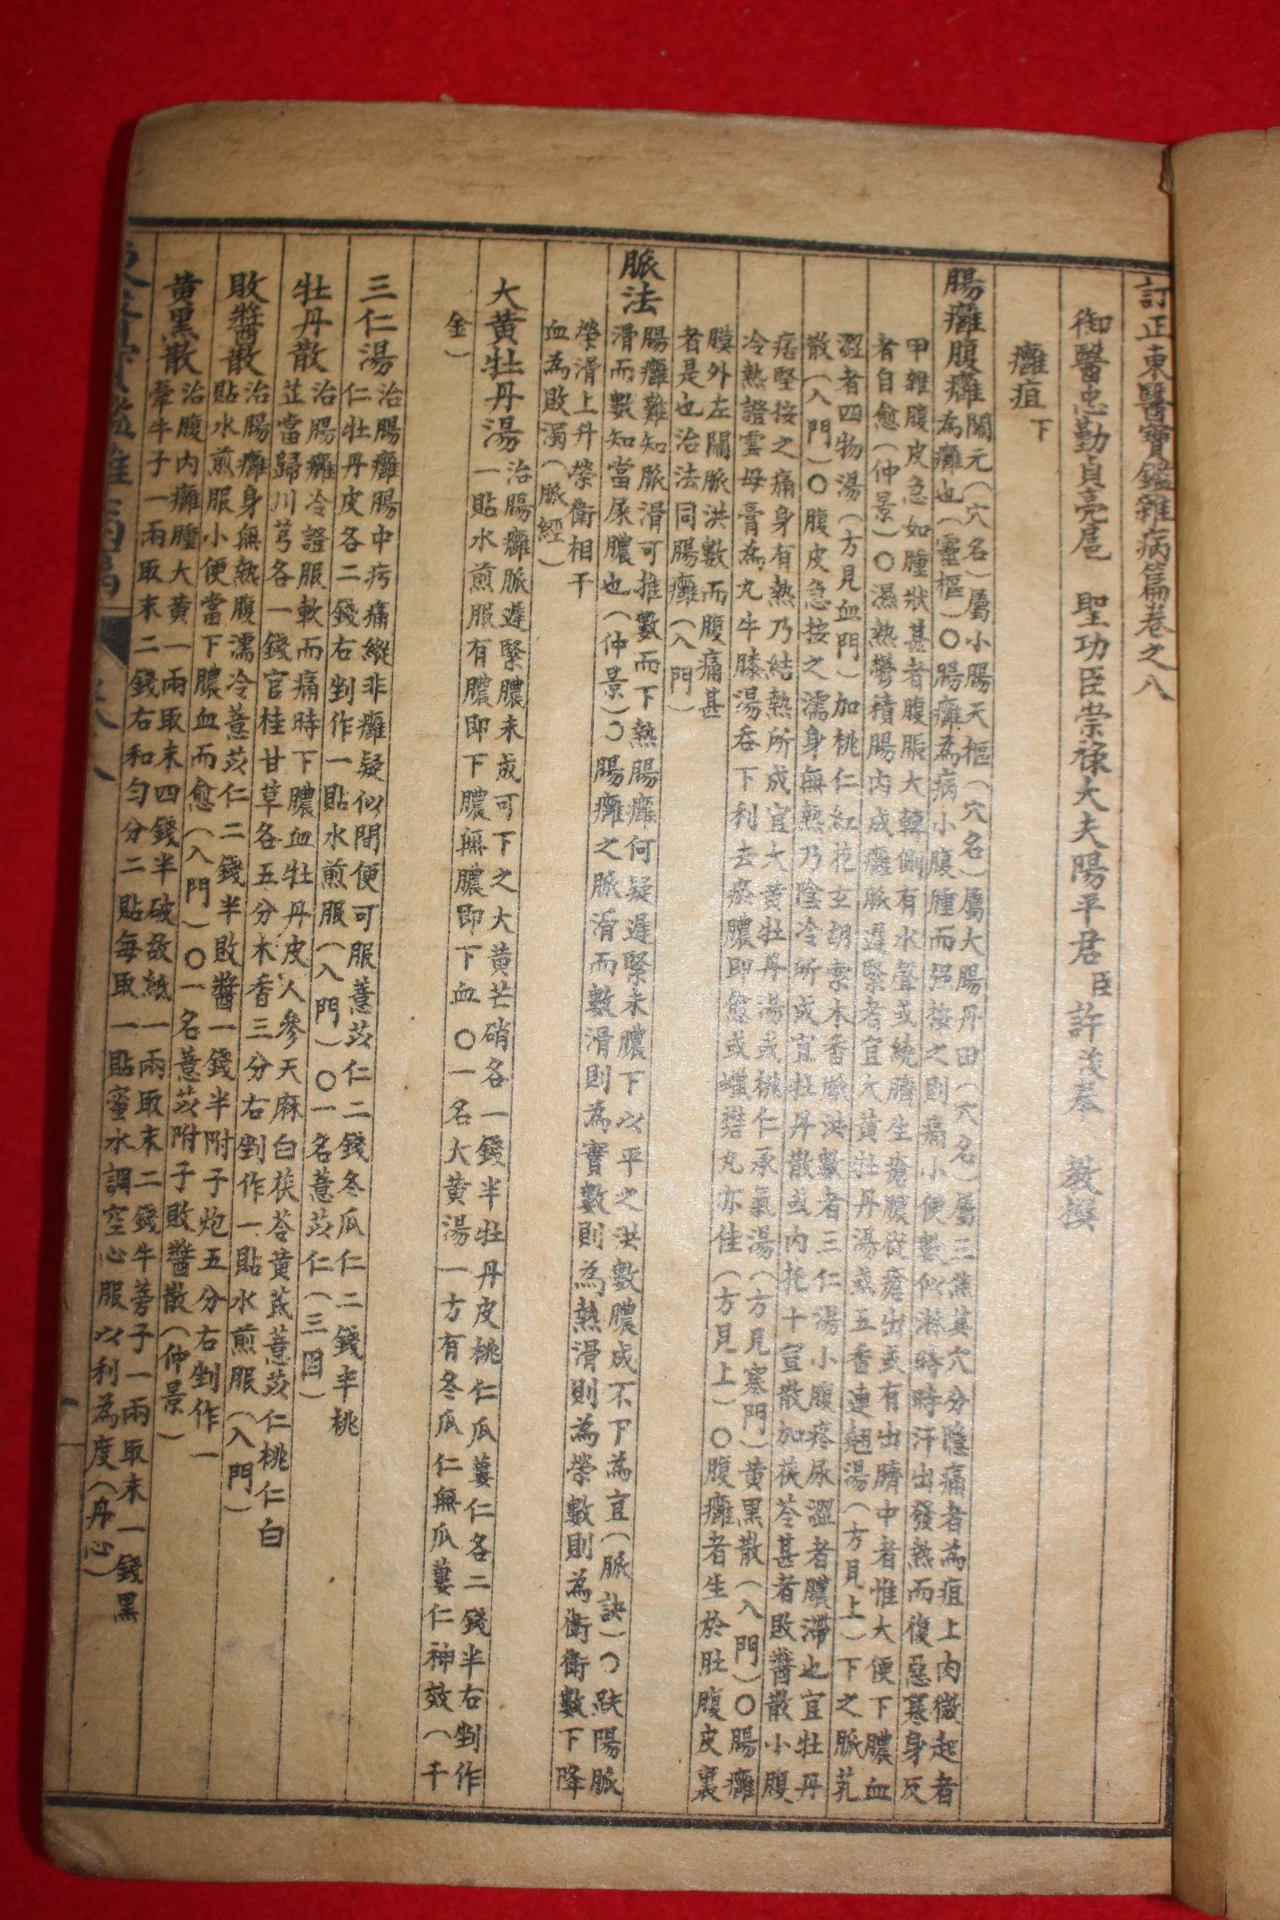 訂正東醫寶鑑雜病篇卷之八
御醫忠勤貞亮扈 聖功臣崇祿大夫陽平君臣許浚奉 敎撰
癰疽下
腸癰腹癰
關元(穴名)屬小腸天樞(穴名)屬大腸丹田(穴名)屬三焦其穴分隱痛者為疽上肉微起者
為癰也(靈樞)○腸癰為病小腹腫而强按之則痛小便數似淋時時汗出發熱而復惡寒身皮
甲錯腹皮急如腫狀甚者腹脹大轉側有水聲或繞臍生瘡膿從瘡出或有出臍中者惟大便下膿血
者自愈(仲景)○濕熱鬱積腸內成癰脈遲緊者宜大黃牡丹湯或五香連翹湯(方見上)下之脈芤
澀者四物湯(方見血門)加桃仁紅花玄胡索木香脈洪數者三仁湯小腹疼尿澀者膿滯也宜牡丹
散(入門)○腹皮急按之濡身無熱乃陰冷所成宜牡丹散或內托十宣散加茯苓甚者敗醬散小腹
痞堅按之痛身有熱乃結熱所成宜大黃牡丹湯或桃仁承氣湯(方見寒門)黃黑散(入門)○腸癰
冷熱證雲母膏為丸牛膝湯呑下利去瘀膿即愈或蠟礬丸亦佳(方見上)○腹癰者生於肚腹皮裏
膜外左關脈洪數而腹痛甚
者是也治法同腸癰(入門)
脈法
腸癰難知脈滑可推數而下熱腸癰何疑遲緊未膿下以平之洪數膿成不下為宜(脈訣)○趺陽脈
滑而數知當屎膿也(仲景)○腸癰之脈滑而數滑則為實數則為熱滑則為榮數則為衛衛數下降
榮滑上升榮衛相干
血為敗濁(脈經)
大黃牡丹湯
治腸癰脈遲緊膿未成可下之大黃芒硝各一錢半牡丹皮桃仁瓜蔞仁各二錢半右剉作
一貼水煎服有膿即下膿無膿即下血○一名大黃湯一方有冬瓜仁無瓜蔞仁神效(千
金)
三仁湯
治腸癰腸中㽲痛縱非癰疑似間便可服薏苡仁二錢冬瓜仁二錢半桃
仁牡丹皮各二錢右剉作一貼水煎服(入門)○一名薏苡仁(三因)
牡丹散
治腸癰冷證服軟而痛時下膿血牡丹皮人參天麻白茯苓黃芪薏苡仁桃仁白
芷當歸川芎各一錢官桂甘草各五分木香三分右剉作一貼水煎服(入門)
敗醬散
治腸癰身無熱腹濡冷薏苡仁二錢半敗醬一錢半附子炮五分右剉作一
貼水煎服小便當下膿血而愈(入門)○一名薏苡附子敗醬散(仲景)
黃黑散
治腹內癰腫大黃一兩取末四錢半破故紙一兩取末二錢牛蒡子一兩取末一錢黑
牽牛子一兩取末二錢右和勻分二貼每取一貼蜜水調空心服以利為度(丹心)